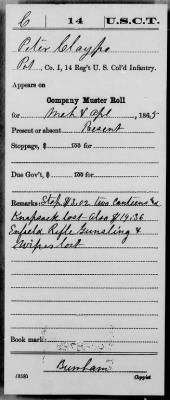 C 14 U.S.C.T.
Peter Claypo
Pvt, Co. I, 14 Reg't U. S. Col'd Infantry.
Appears on
Company Muster Roll
for Mch & Apl, 1865
Present or absent Present
Stoppage, $ 100 for
Due Gov't, $ 100 for
Remarks: Stop $3.02 two Canteens &
Knapsack lost Also $19.36
Enfield Rifle Gunsling &
Wiper lost
Book mark:
Burnham
(858) Copyist.